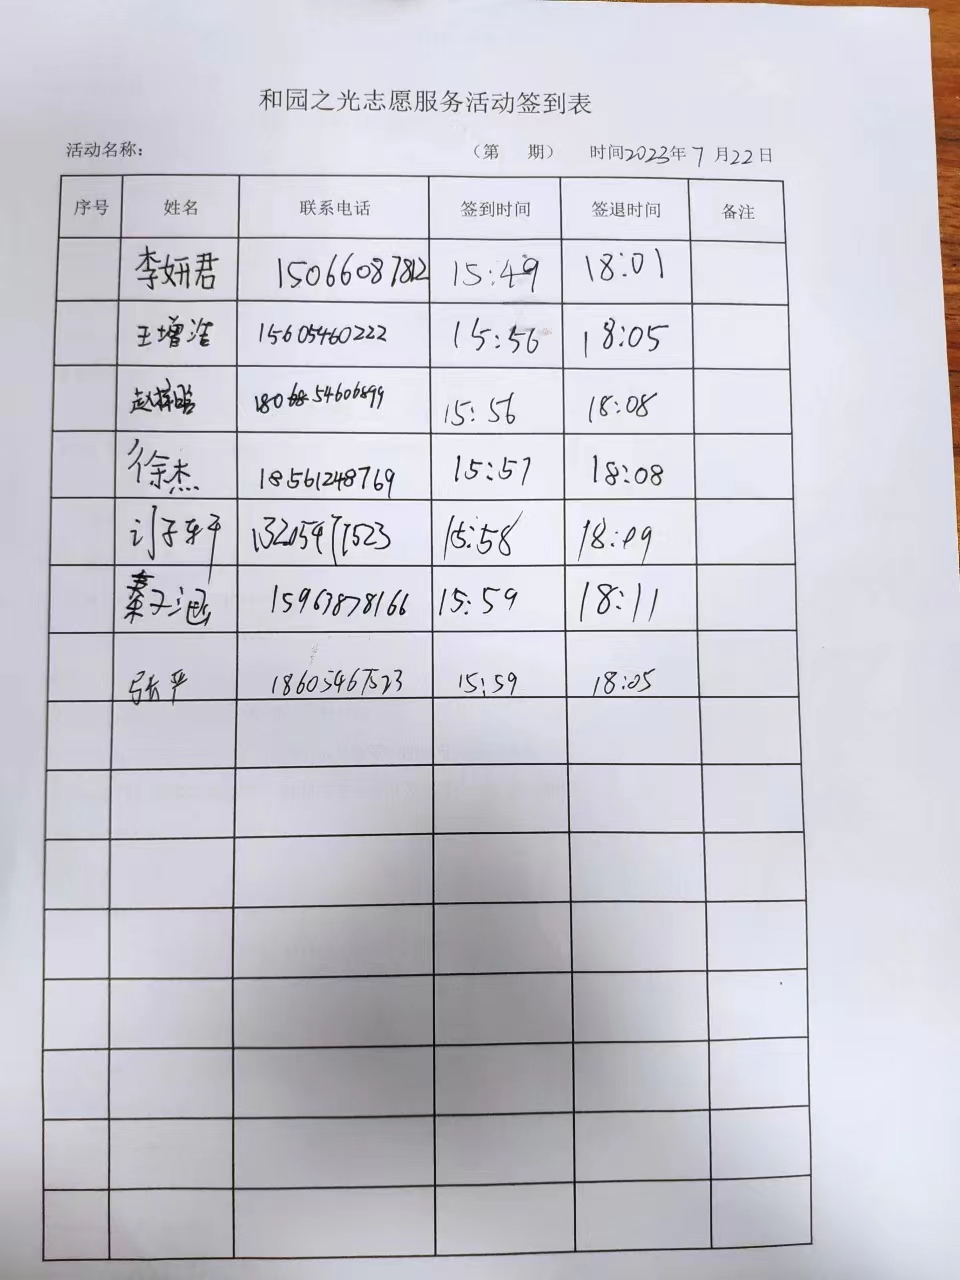 和园之光志愿服务活动签到表
活动名称： （第 期） 时间2023年7月22日
序号 姓名 联系电话 签到时间 签退时间 备注
李妍君 15066087812 15:49 18:01
王增浩 15605460222 15:56 18:05
赵 15:56 18:08
徐杰 18561248769 15:57 18:08
15:58 18:09
秦子涵 15963878166 15:59 18:11
张严 18605467523 15:59 18:05